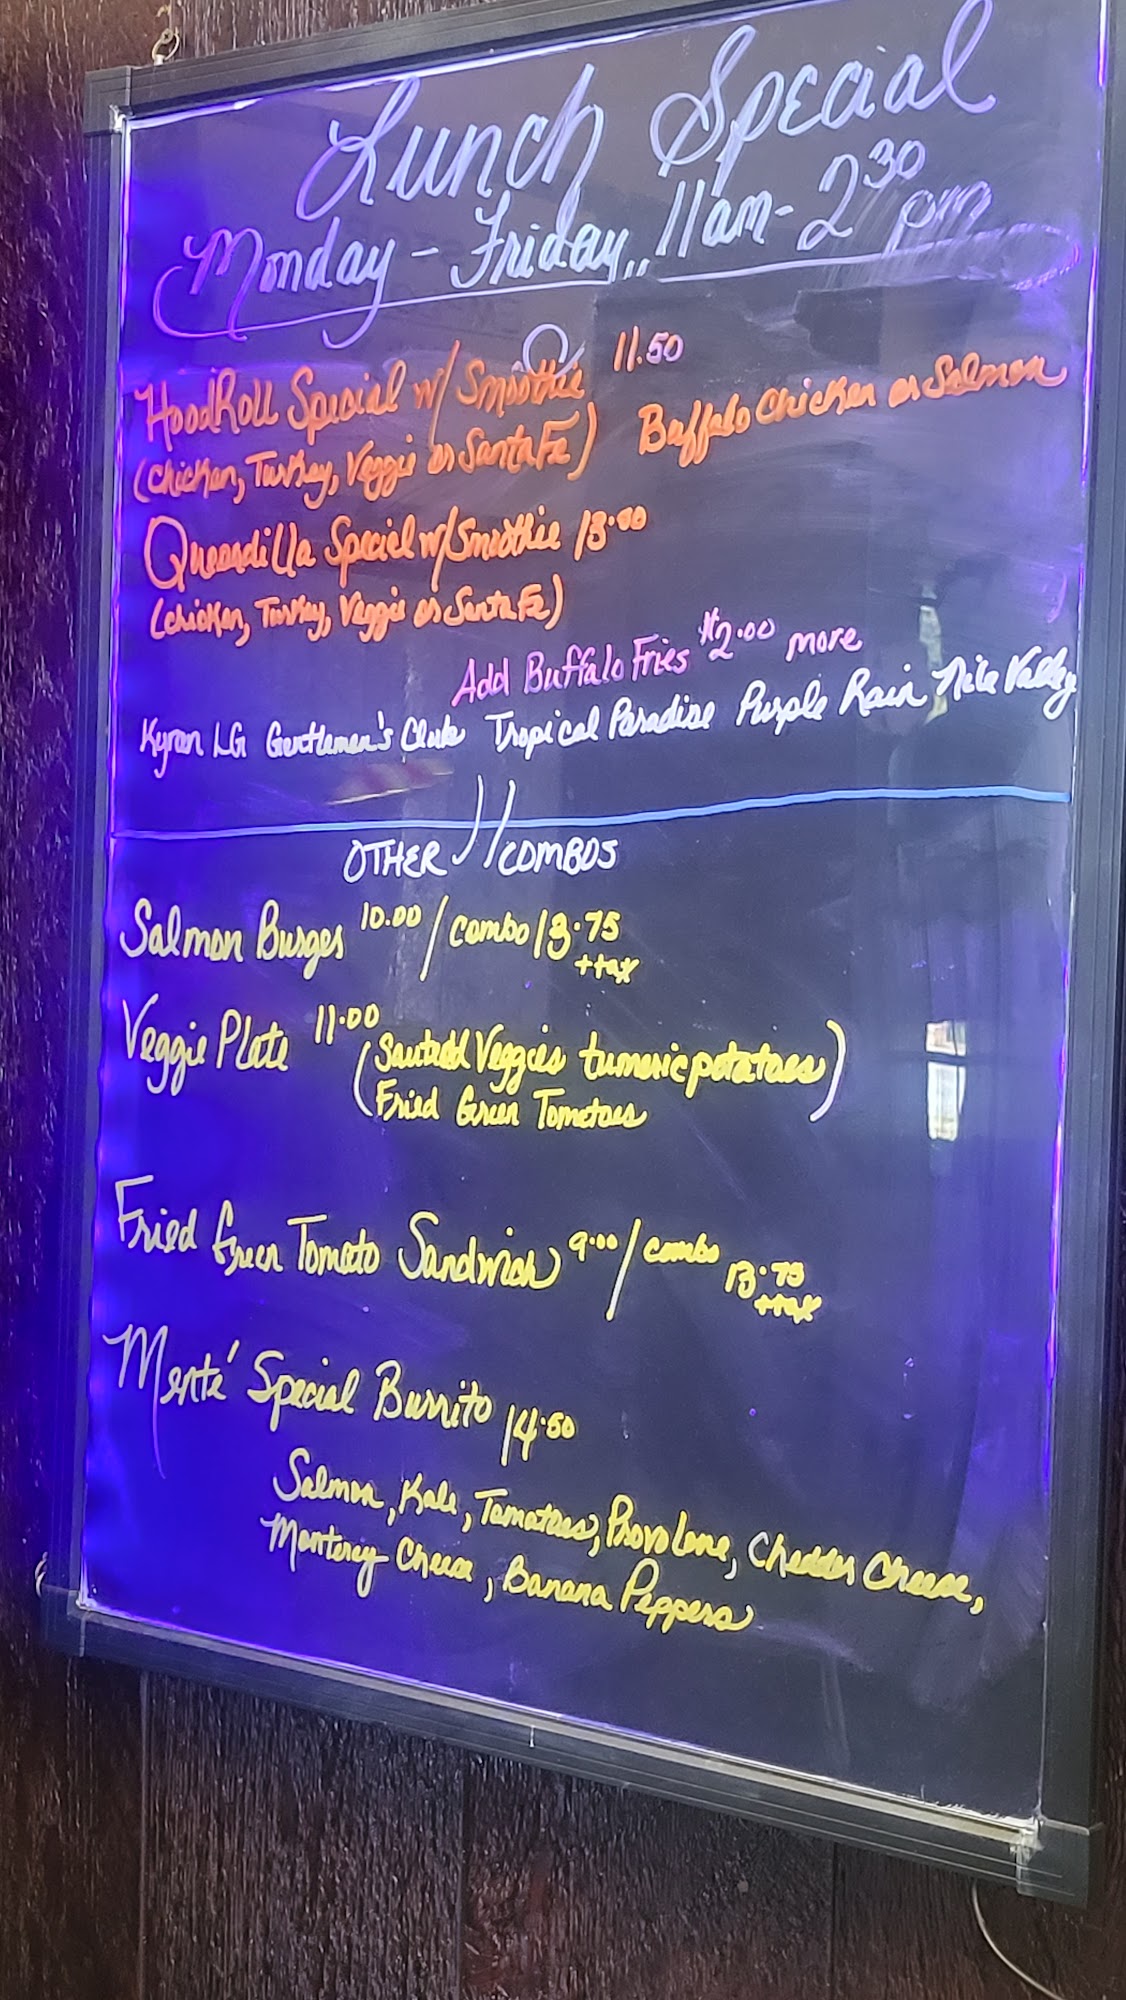 Lunch Special
Monday - Friday,, 11am - 2 30 pm
HoodRoll Special w/ Smoothie 11.50
(Chicken, Turkey, Veggie or Santa Fe) Buffalo Chicken or Salmon
Quesadilla Special w/ Smoothie 13.00
(Chicken, Turkey, Veggie or Santa Fe)
Add Buffalo Fries $2.00 more
LG Gentlemen's Tropical Paradise Purple Rain Nile Valley
OTHER // COMBOS
Salmon Burges 10.00 / combo 13.75
+tax
Veggie Plate 11.00
(Sauteed Veggies tumeric potatoes)
Fried Green Tomatoes
Fried Green Tomato Sandwich 9.00 / combo 13.75
+tax
Menté Special Burrito 14.50
Salmon, Kale, Tomatoes, Provolone, Cheddar Cheese,
Monterey Cheese, Banana Peppers